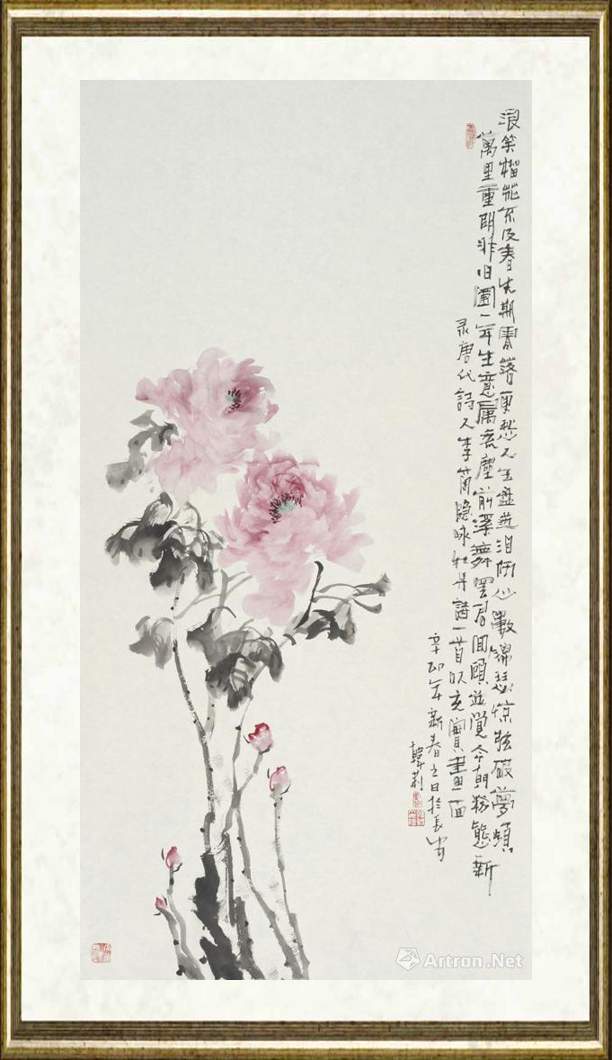 浪笑榴花不及春先期零落更愁人玉盘迸泪伤心數錦瑟惊弦破夢頻
萬里重阴非旧圃一年生意属流塵前溪舞罢君回顧並覺今朝粉態新
录唐代詩人李商隐咏牡丹詩一首以充實畫面
辛卯年新春之日於長安
韓莉
Artron.Net